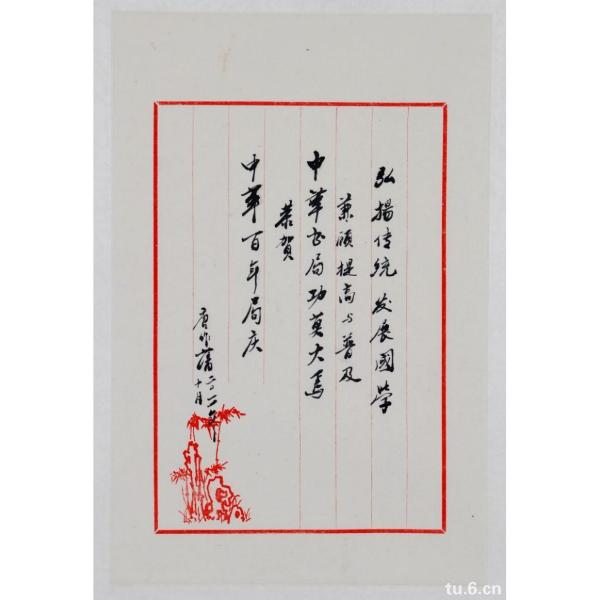 弘揚传统 发展國学
兼顾提高与普及
中华书局功莫大焉
恭賀
中华百年局庆
唐作藩 二〇一一年
十月
tu.6.cn